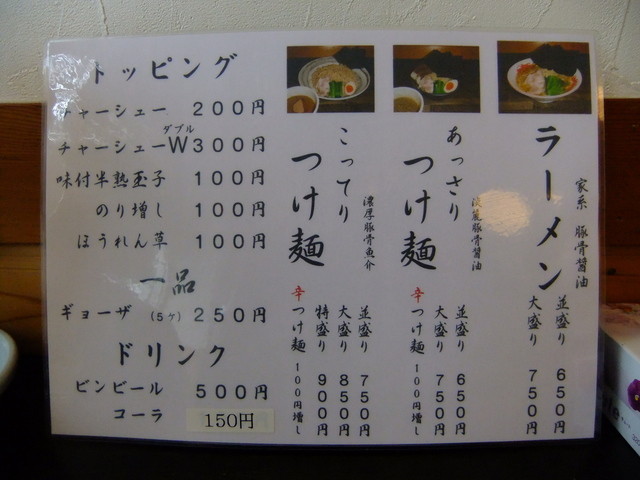 家系 豚骨醤油
ラーメン
並盛り 650円
大盛り 750円
あっさり
つけ麺
淡麗豚骨醤油
並盛り 650円
大盛り 750円
辛つけ麺 100円増し
こってり
つけ麺
濃厚豚骨魚介
並盛り 750円
大盛り 850円
特盛り 900円
辛つけ麺 100円増し
トッピング
チャーシュー 200円
ダブル
チャーシューW 300円
味付半熟玉子 100円
のり増し 100円
ほうれん草 100円
一品
ギョーザ (5ケ) 250円
ドリンク
ビンビール 500円
コーラ 150円